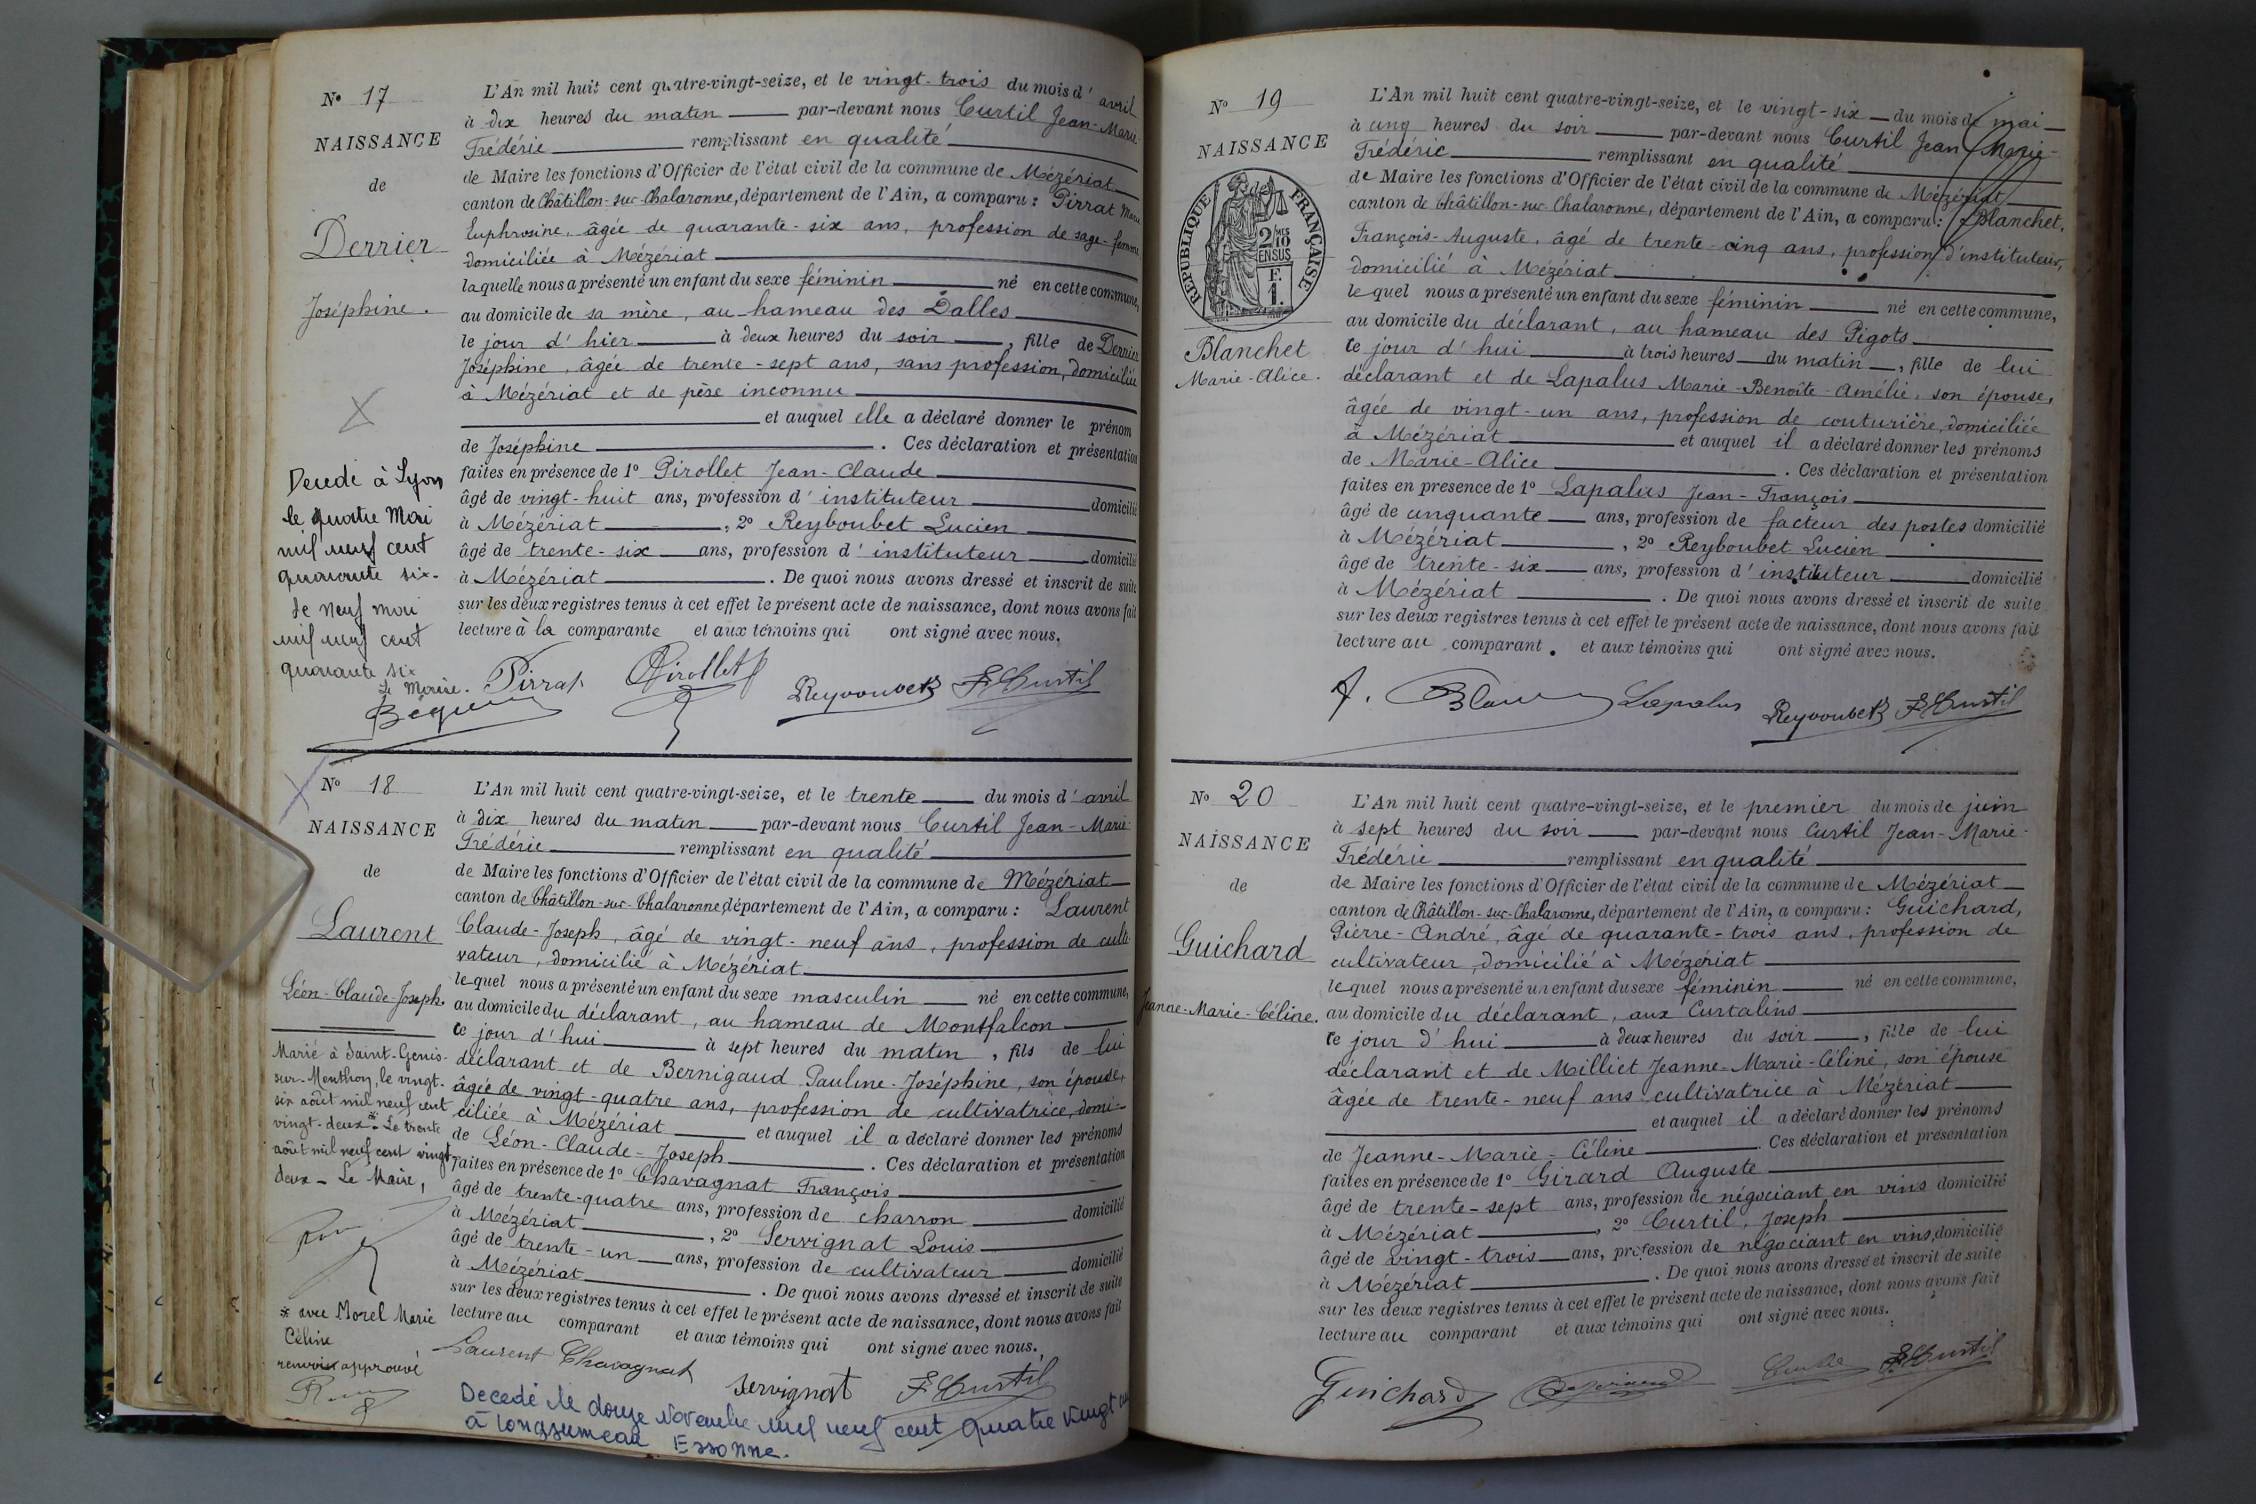 N° 17
NAISSANCE
de
Derrier
Joséphine.
L'An mil huit cent quatre-vingt-seize, et le vingt-trois du mois d'avril
à dix heures du matin par-devant nous Curtil Jean-Marie
Frédéric remplissant en qualité
de Maire les fonctions d'Officier de l'état civil de la commune de Mézériat
canton de Châtillon-sur-Chalaronne, département de l'Ain, a comparu : Pirrat Marie
Euphrosine, âgée de quarante-six ans, profession de sage-femme
domiciliée à Mézériat
laquelle nous a présenté un enfant du sexe féminin né en cette commune,
au domicile de sa mère, au hameau des Dalles
le jour d'hier à deux heures du soir, fille de Derrier
Joséphine, âgée de trente-sept ans, sans profession, domiciliée
à Mézériat et de père inconnu
et auquel elle a déclaré donner le prénom
de Joséphine. Ces déclaration et présentation
faites en présence de 1° Pirollet Jean-Claude
âgé de vingt-huit ans, profession d'instituteur domicilié
à Mézériat, 2° Reyboubet Lucien
âgé de trente-six ans, profession d'instituteur domicilié
à Mézériat. De quoi nous avons dressé et inscrit de suite
sur les deux registres tenus à cet effet le présent acte de naissance, dont nous avons fait
lecture à la comparante et aux témoins qui ont signé avec nous.
Decedé à Lyon
le quatre Mai
mil neuf cent
quarante six.
Le neuf mai
mil neuf cent
quarante six
Le Maire.
Pirrat Pirollet Reyboubet F Curtil
N° 18
NAISSANCE
de
Laurent
Léon-Claude-Joseph.
L'An mil huit cent quatre-vingt-seize, et le trente du mois d'avril
à dix heures du matin par-devant nous Curtil Jean-Marie-
Frédéric remplissant en qualité
de Maire les fonctions d'Officier de l'état civil de la commune de Mézériat
canton de Châtillon-sur-Chalaronne, département de l'Ain, a comparu : Laurent
Claude-Joseph, âgé de vingt-neuf ans, profession de culti-
vateur, domicilié à Mézériat
lequel nous a présenté un enfant du sexe masculin né en cette commune,
au domicile du déclarant, au hameau de Montfalcon
ce jour d'hui à sept heures du matin, fils de lui
déclarant et de Bernigaud Pauline-Joséphine, son épouse,
âgée de vingt-quatre ans, profession de cultivatrice, domi-
ciliée à Mézériat et auquel il a déclaré donner les prénoms
de Léon-Claude-Joseph. Ces déclaration et présentation
faites en présence de 1° Chavagnat François
âgé de trente-quatre ans, profession de charron domicilié
à Mézériat, 2° Servignat Louis
âgé de trente-un ans, profession de cultivateur domicilié
à Mézériat. De quoi nous avons dressé et inscrit de suite
sur les deux registres tenus à cet effet le présent acte de naissance, dont nous avons fait
lecture au comparant et aux témoins qui ont signé avec nous.
Marié à Saint-Genis-
sur-Menthon, le vingt-
six août mil neuf cent
vingt-deux * Le trente
août mil neuf cent vingt-
deux - Le Maire,
* avec Morel Marie
Céline
renvoi approuvé
Laurent Chavagnat Servignat F Curtil
Decedé le douze Novembre mil neuf cent quatre vingt un
à Longjumeau Essonne.
N° 19
NAISSANCE
RÉPUBLIQUE FRANÇAISE
2/10 MES
EN SUS
F.
1.
Blanchet
Marie-Alice.
L'An mil huit cent quatre-vingt-seize, et le vingt-six du mois de mai
à cinq heures du soir par-devant nous Curtil Jean-Marie-
Frédéric remplissant en qualité
de Maire les fonctions d'Officier de l'état civil de la commune de Mézériat
canton de Châtillon-sur-Chalaronne, département de l'Ain, a comparu : Blanchet,
François-Auguste, âgé de trente-cinq ans, profession d'instituteur,
domicilié à Mézériat
lequel nous a présenté un enfant du sexe féminin né en cette commune,
au domicile du déclarant, au hameau des Pigots
ce jour d'hui à trois heures du matin, fille de lui
déclarant et de Lapalus Marie-Benoîte-Amélie, son épouse,
âgée de vingt-un ans, profession de couturière, domiciliée
à Mézériat et auquel il a déclaré donner les prénoms
de Marie-Alice. Ces déclaration et présentation
faites en présence de 1° Lapalus Jean-François
âgé de cinquante ans, profession de facteur des postes domicilié
à Mézériat, 2° Reyboubet Lucien
âgé de trente-six ans, profession d'instituteur domicilié
à Mézériat. De quoi nous avons dressé et inscrit de suite
sur les deux registres tenus à cet effet le présent acte de naissance, dont nous avons fait
lecture au comparant. et aux témoins qui ont signé avec nous.
Lapalus Reyboubet F Curtil
N° 20
NAISSANCE
de
Guichard
Jeanne-Marie-Céline.
L'An mil huit cent quatre-vingt-seize, et le premier du mois de juin
à sept heures du soir par-devant nous Curtil Jean-Marie-
Frédéric remplissant en qualité
de Maire les fonctions d'Officier de l'état civil de la commune de Mézériat
canton de Châtillon-sur-Chalaronne, département de l'Ain, a comparu : Guichard,
Pierre-André, âgé de quarante-trois ans, profession de
cultivateur, domicilié à Mézériat
lequel nous a présenté un enfant du sexe féminin né en cette commune,
au domicile du déclarant, aux Curtalins
ce jour d'hui à deux heures du soir, fille de lui
déclarant et de Milliet Jeanne-Marie-Céline, son épouse
âgée de trente-neuf ans cultivatrice à Mézériat
et auquel il a déclaré donner les prénoms
de Jeanne-Marie-Céline. Ces déclaration et présentation
faites en présence de 1° Girard Auguste
âgé de trente-sept ans, profession de négociant en vins domicilié
à Mézériat, 2° Curtil, Joseph
âgé de vingt-trois ans, profession de négociant en vins, domicilié
à Mézériat. De quoi nous avons dressé et inscrit de suite
sur les deux registres tenus à cet effet le présent acte de naissance, dont nous avons fait
lecture au comparant et aux témoins qui ont signé avec nous.
Guichard F Curtil